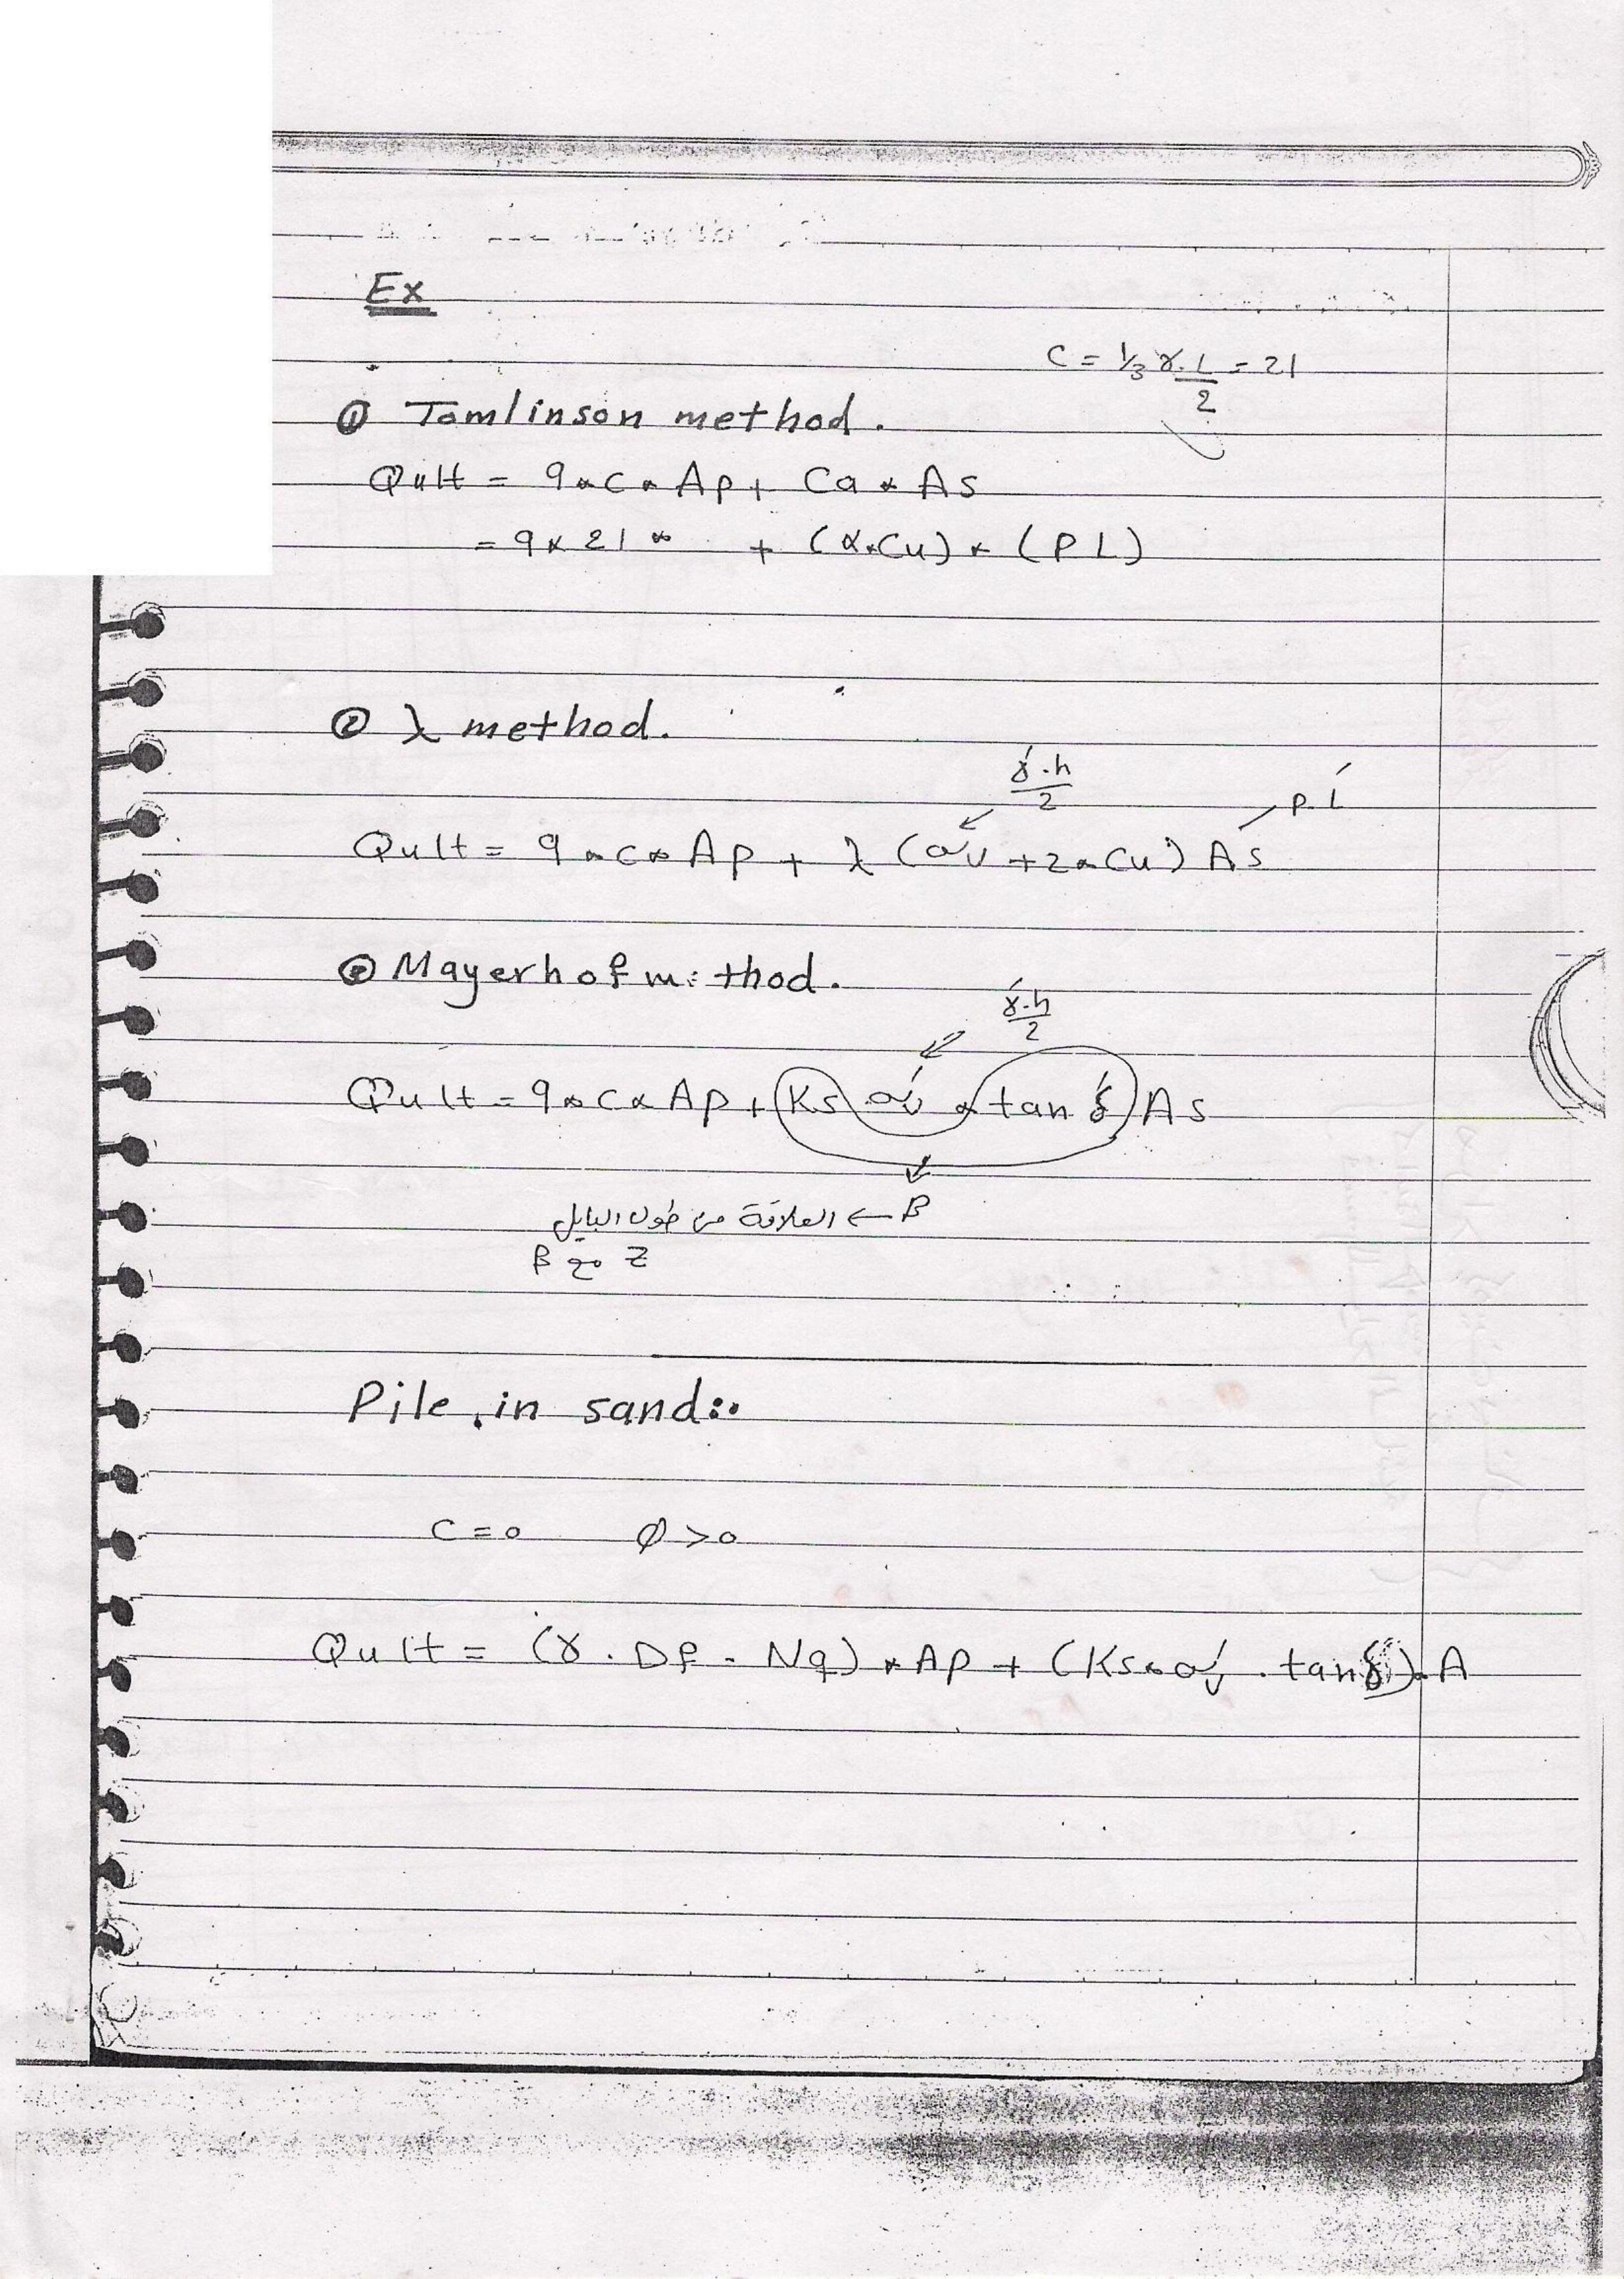 Ex
C = 1/3 γ. L/2 = 21
① Tomlinson method.
Qult = 9 * C * Ap + Ca * As
= 9 * 21 * + (α * Cu) * (PL)
② λ method.
γ́.h/2
P Ĺ
Qult = 9 * C * Ap + λ (σ́v + 2 * Cu) As
③ Mayerhof method.
γ́.h/2
Qult = 9 * C * Ap + Ks σ́v * tan δ́ As
β ← العلاقة من طول البايل
Z مع β
Pile in sand:.
C = 0 Ø > 0
Qult = (γ . Df . Nq) * Ap + (Ks * σ́v . tan δ́) . A